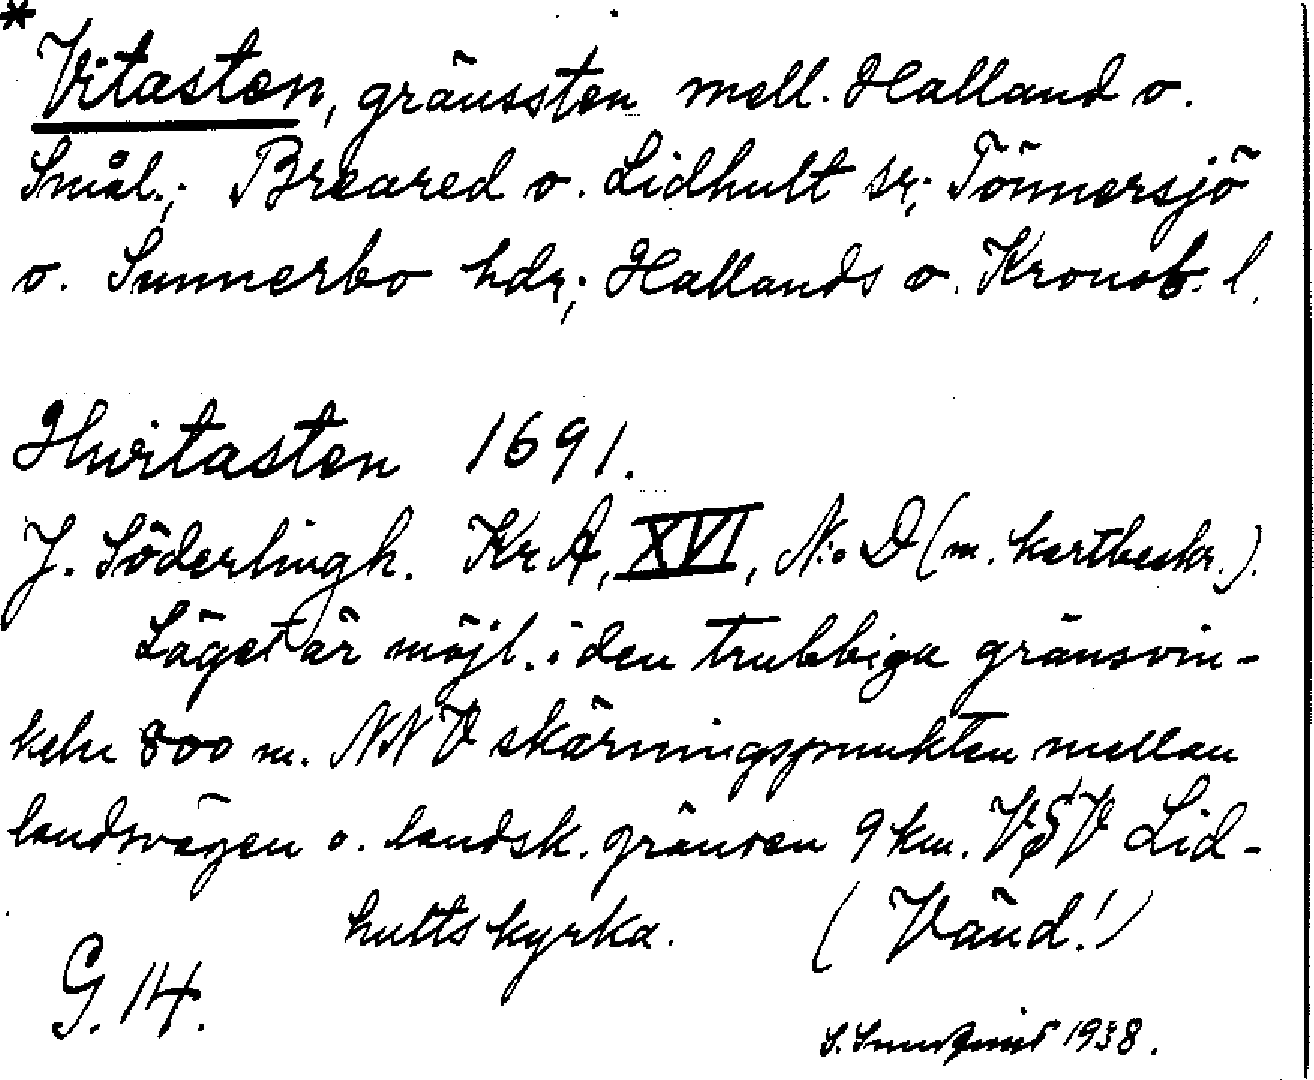 *
Vitasten, gränssten mell. Halland o.
Smål.; Breared o. Lidhult sr; Tönnersjö
o. Sunnerbo hdr; Hallands o. Kronob. l.
Hwitasten 1691.
J. Söderlingh. Kr A, XVI, N:o D (m. kartbeskr.).
Läget är möjl. i den trubbiga gränsvin-
keln 800 m. NNV skärningspunkten mellan
landsvägen o. landsk. gränsen 9 km. VSV Lid-
hults kyrka. (Vänd!)
G. 14.
S. 1938.